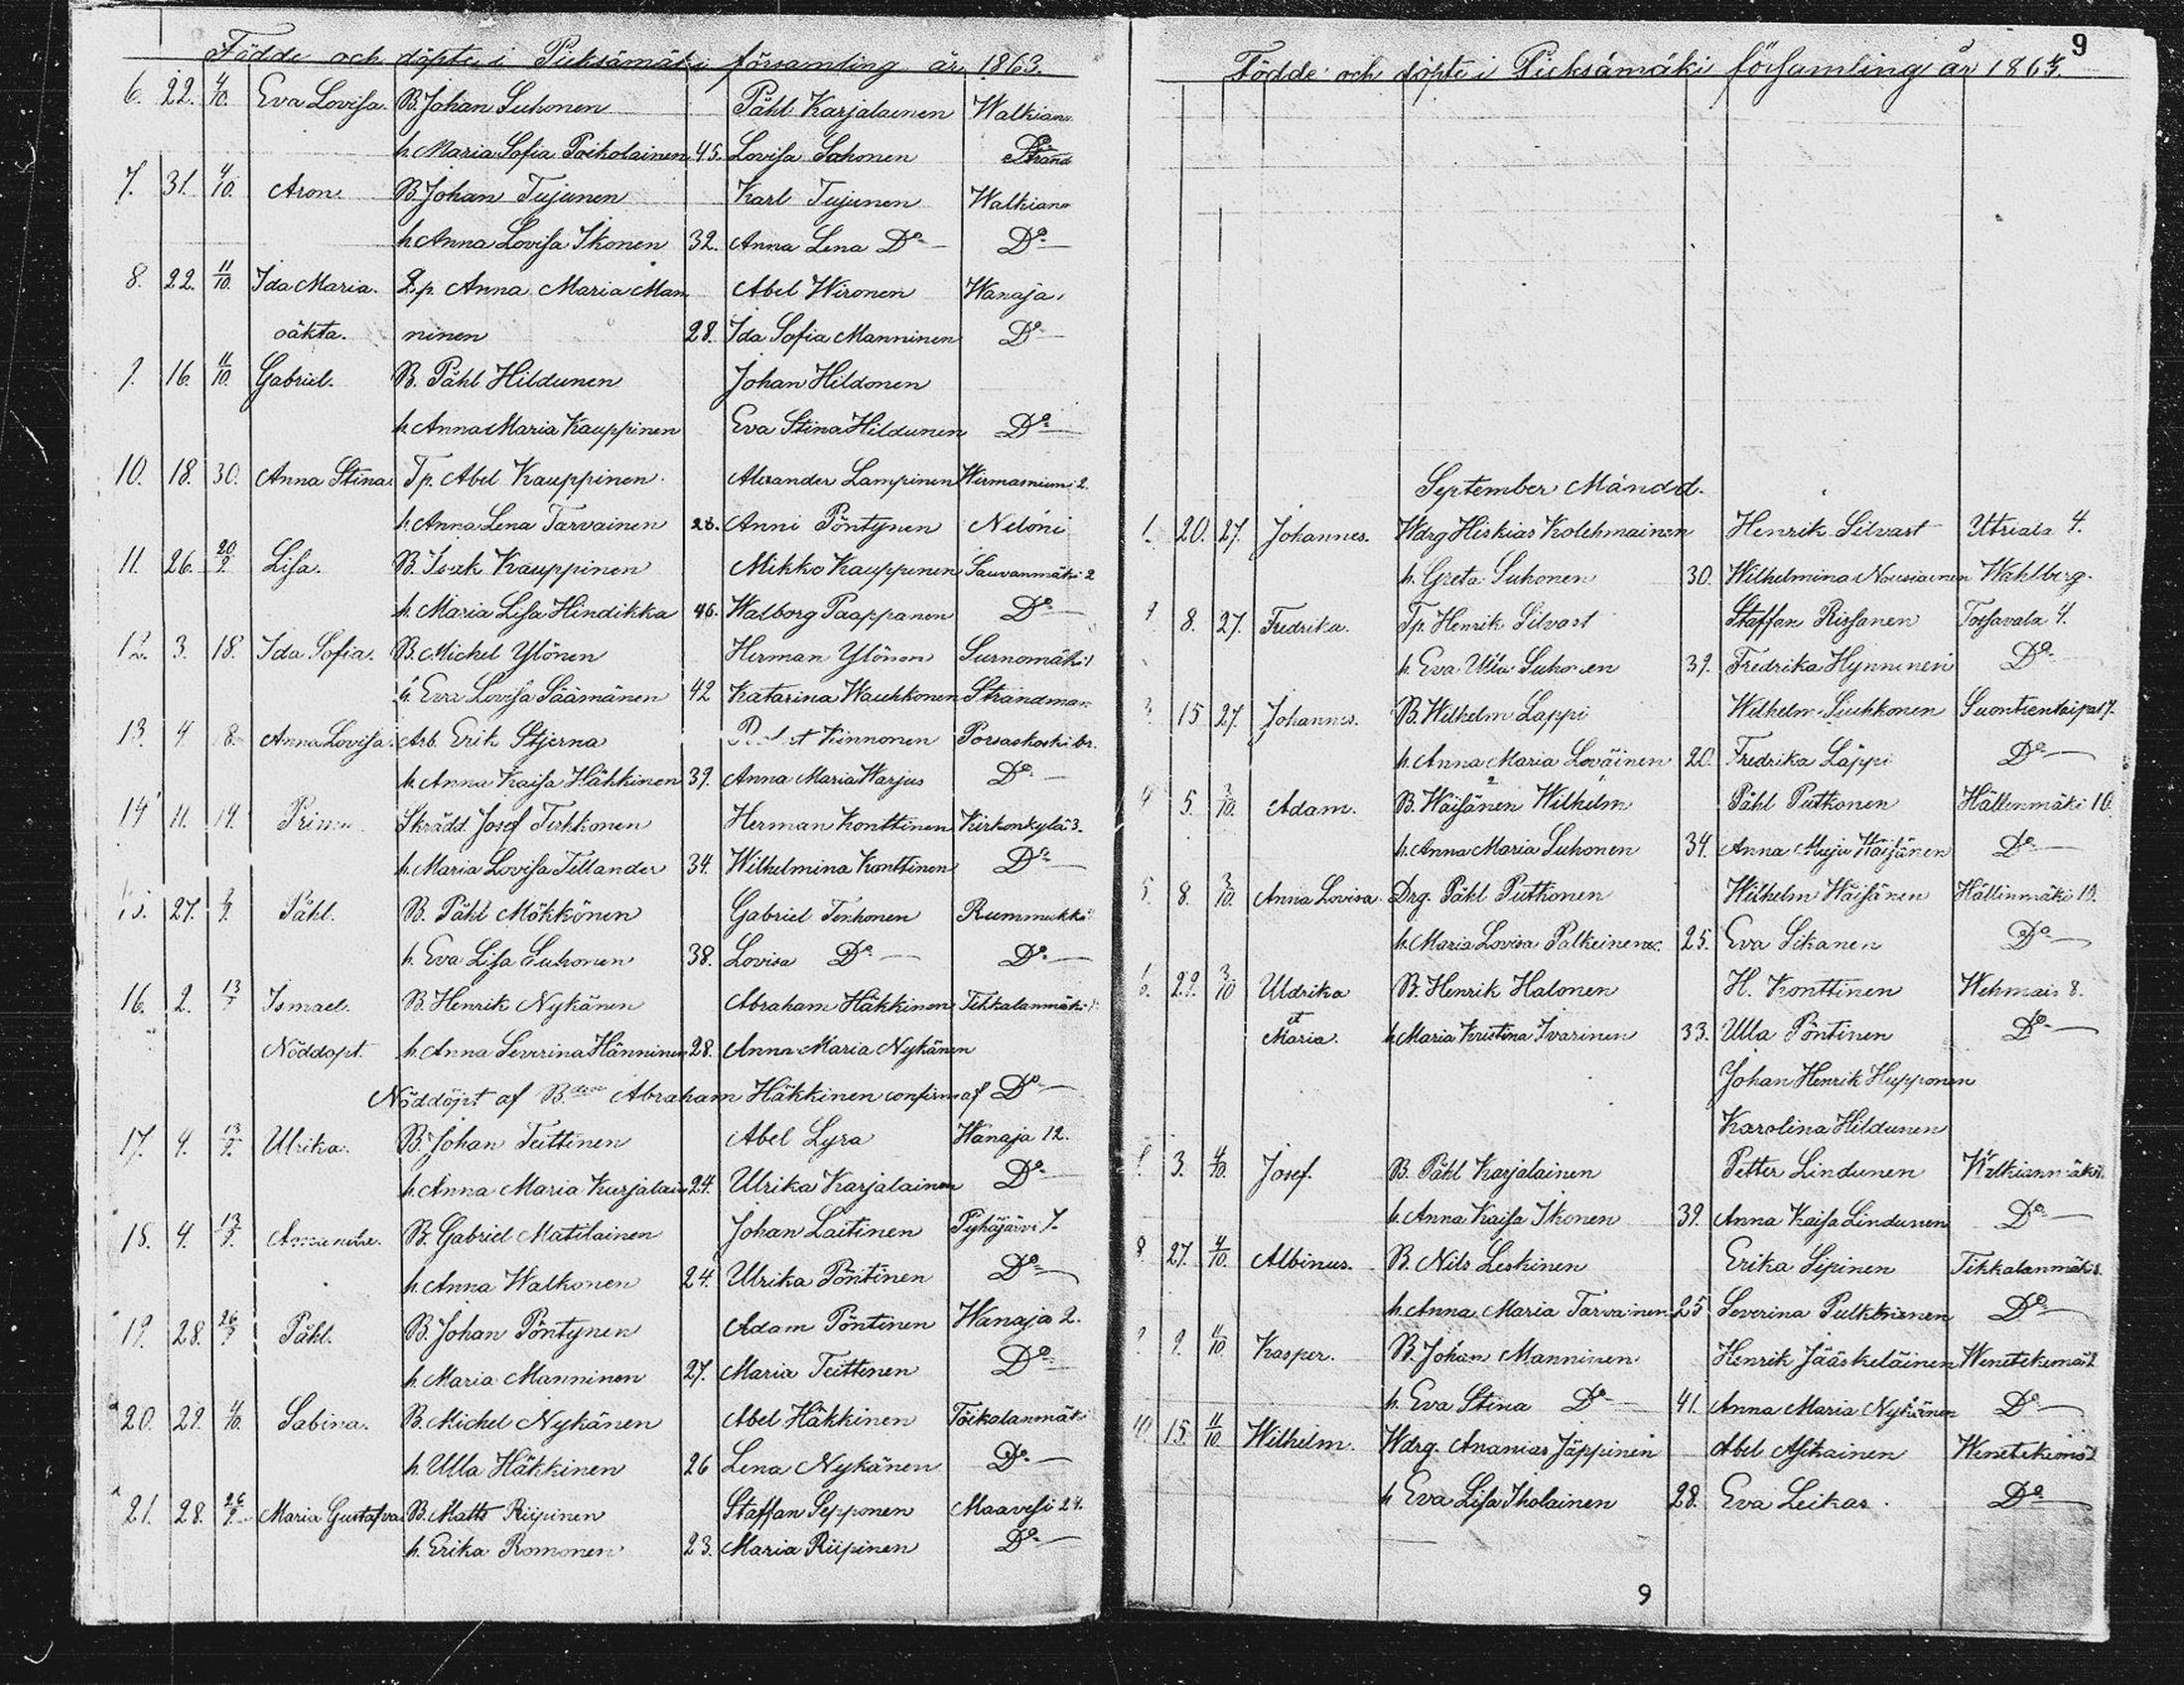 Födde och döpte i Pieksämäki församling år 1863.
6. 22. 4/10. Eva Lovisa. B. Johan Suhonen Påhl Karjalainen Walkian
h. Maria Sofia Poikolainen 45. Lovisa Sohonen Strand
7. 31. 4/10. Aron. B. Johan Tujunen Karl Tujunen Walkian
h. Anna Lovisa Ikonen 32. Anna Lena Do Do
8. 22. 11/10. Ida Maria. Anna Maria Man Abel Wironen Wanaja
oäkta. ninen 28. Ida Sofia Manninen Do
9. 16. 11/10. Gabriel. B. Påhl Hildunen Johan Hildonen
h. Anna Maria Kauppinen Eva Stina Hildunen Do
10. 18. 30. Anna Stina Tp. Abel Kauppinen Alexander Lampinen 2.
h. Anna Lena Tarvainen 28. Anni Pöntynen
11. 26. 20/9 Lisa. B. Isak Kauppinen Mikko Kauppinen Sauvanmäki 2
h. Maria Lisa Hindikka 46. Walborg Paappanen Do
12. 3. 18. Ida Sofia. B. Michel Ylönen Herman Ylönen Surnomäki
h. Eva Lovisa Säämänen 42 Katarina Wauhkonen Strandman
13. 4 8. Anna Lovisa. Arb. Erik Stjerna Kinnonen Porsaskoski br.
h. Anna Kaisa Hähkinen 39. Anna Maria Warjus Do
14 11. 19. Skrädd. Josef Tirhkonen Herman Konttinen Kirkonkylä 3.
h. Maria Lovisa Tillander 34. Wilhelmina Konttinen Do
15. 27. Påhl. B. Påhl Mökkönen Gabriel Tenhonen Rummukka
h. Eva Lisa Suhonen 38. Lovisa Do Do
16. 2. 13/9 Ismael. B. Henrik Nykänen Abraham Häkkinen Tikkalanmäki
Nöddöpt. h. Anna Severina Hänninen 28. Anna Maria Nykänen
Nöddöpt af Abraham Häkkinen confirm af Do
17. 4. 13/9. Ulrika. B. Johan Teittinen Abel Lyra Wanaja 12.
h. Anna Maria Karjalain 24. Ulrika Karjalainen Do
18. 4. 13/9. B. Gabriel Matilainen Johan Laitinen Pyhäjärvi 7.
h. Anna Walkonen 24. Ulrika Pöntinen Do
19. 28. 26/9 Påhl. B. Johan Pöntynen Adam Pöntinen Wanaja 2.
h. Maria Manninen 27. Maria Teittinen Do
20. 29. 4/10. Sabina. B. Michel Nykänen Abel Häkkinen
h. Ulla Häkkinen 26 Lena Nykänen Do
21. 28. 26/9. Maria Gustafva B. Matts Riipinen Staffan Sepponen Maavesi 24.
h. Erika Romonen 23. Maria Riipinen Do
9
Födde och döpte i Pieksämäki församling år 1863.
September Månad.
1. 20. 27. Johannes. Wdrg Hiskias Kolehmainen Henrik Silvast Utriala 4.
h. Greta Suhonen 30. Wilhelmina Nousiainen Wahlberg.
8. 27. Fredrika. Tp. Henrik Silvast Staffan Rissanen Tossavala 4.
h. Eva Ulla Suhonen 39. Fredrika Hynninen Do
3. 15 27. Johannes. B. Wilhelm Lappi Wilhelm Suhkonen Suontientaipal 7.
h. Anna Maria Loväinen 20. Fredrika Läppi Do
4 5. 3/10. Adam. B. Wäisänen Wilhelm Påhl Putkonen Hällinmäki 10.
h. Anna Maria Suhonen 34. Anna Maja Wäisänen Do
5. 8. 3/10. Anna Lovisa. Drg. Påhl Puttonen Wilhelm Wäisänen Hällinmäki 10.
h. Maria Lovisa Palkeinen 25. Eva Sikanen Do
6. 29. 3/10 Uldrika B. Henrik Halonen H. Konttinen Wehmais 8.
et
Maria. h. Maria Kristina Ivarinen 33. Ulla Pöntinen Do
Johan Henrik Hupponen
Karolina Hildunen
3. 4/10. Josef. B. Påhl Karjalainen Petter Lindunen Walkianmäki
h. Anna Kaisa Ikonen 39. Anna Kaisa Lindunen Do
8 27. 4/10. Albinus. B. Nils Leskinen Erika Sipinen Tikkalanmäki
h. Anna Maria Tarvainen 25 Severina Pulkkinen Do
9. 11/10 Kasper. B. Johan Manninen Henrik Jääskeläinen Wenetekemä 2
h. Eva Stina Do 41. Anna Maria Nykänen Do
10. 15. 11/10 Wilhelm. Wdrg. Ananias Jäppinen Abel Asikainen Wenetekemä 2
h Eva Lisa Iholainen 28. Eva Leikas Do
9